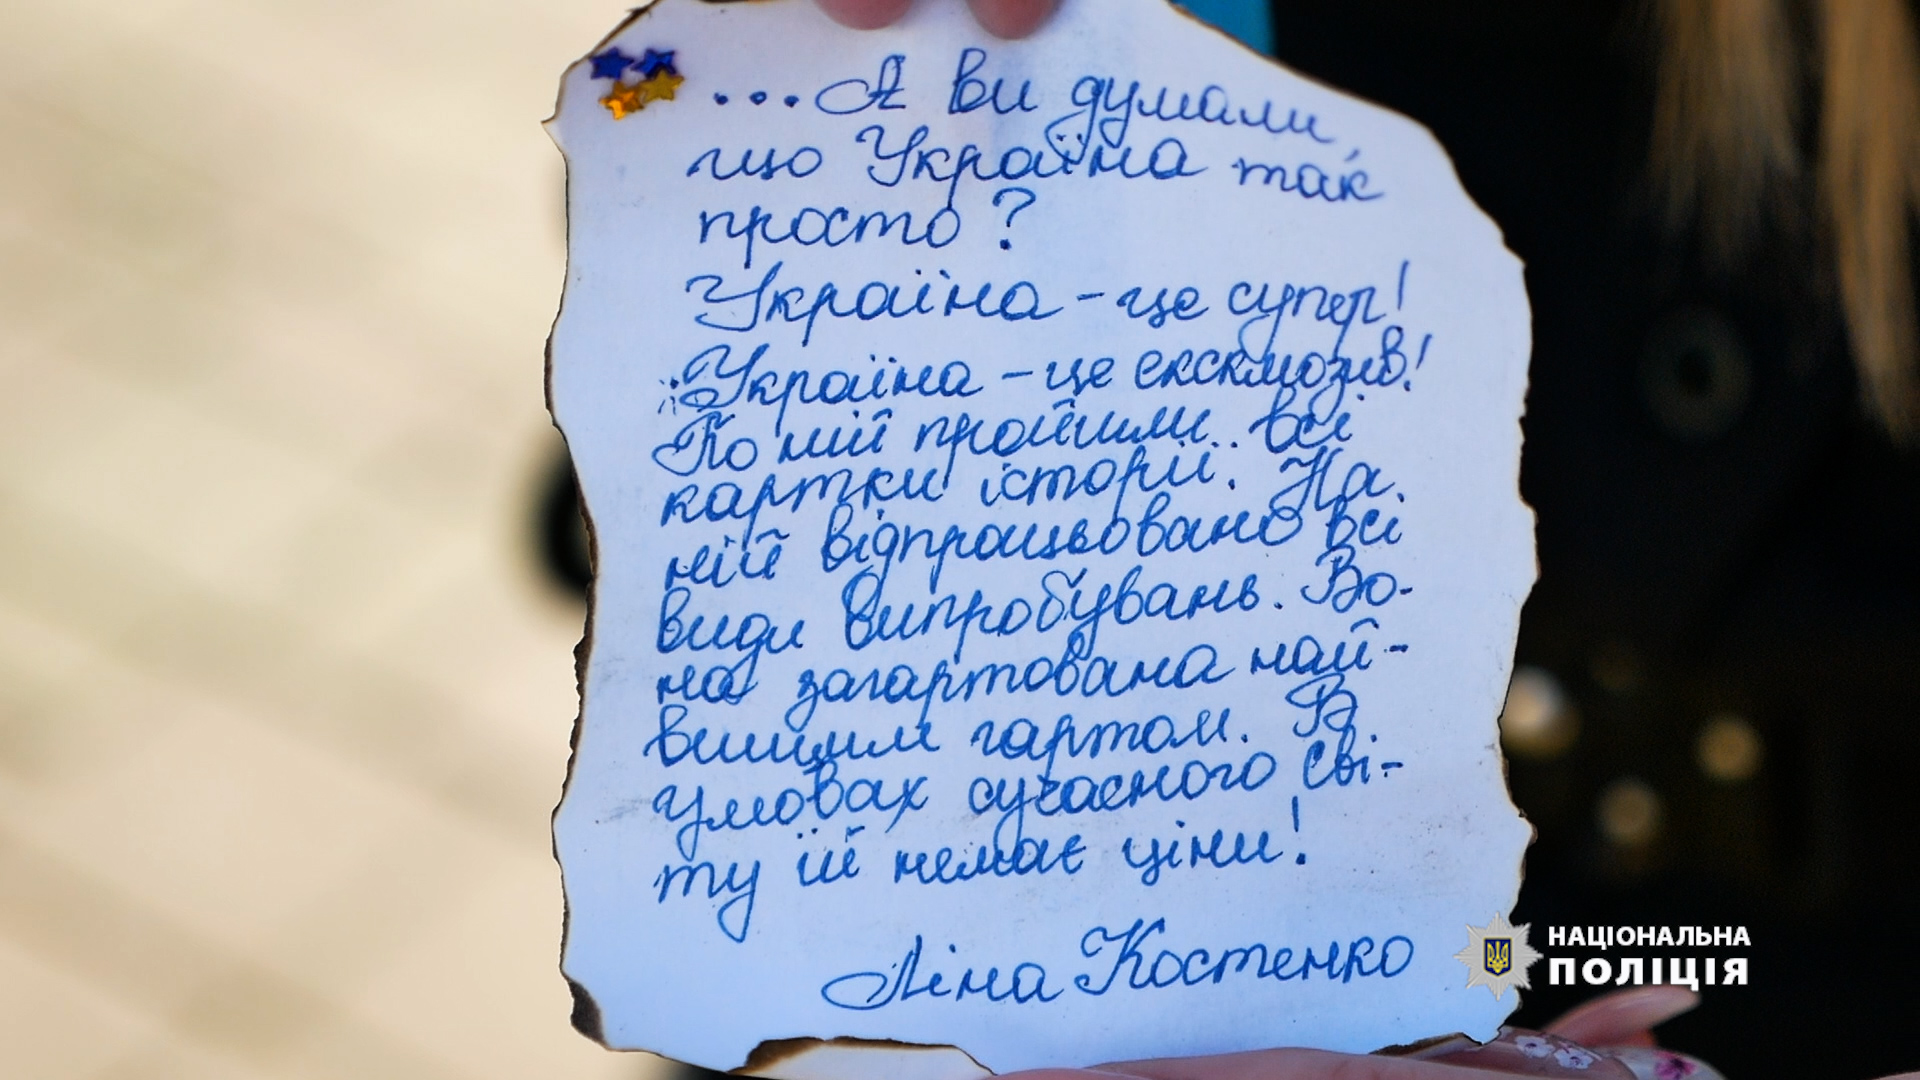 ...А ви думали,
що Україна так
просто?
Україна - це супер!
Україна - це ексклюзив!
По ній пройшли всі
катки історії. На
ній відпрацьовано всі
види випробувань. Во-
на загартована най-
вищим гартом. В
умовах сучасного сві-
ту їй немає ціни!
Ліна Костенко
НАЦІОНАЛЬНА
ПОЛІЦІЯ